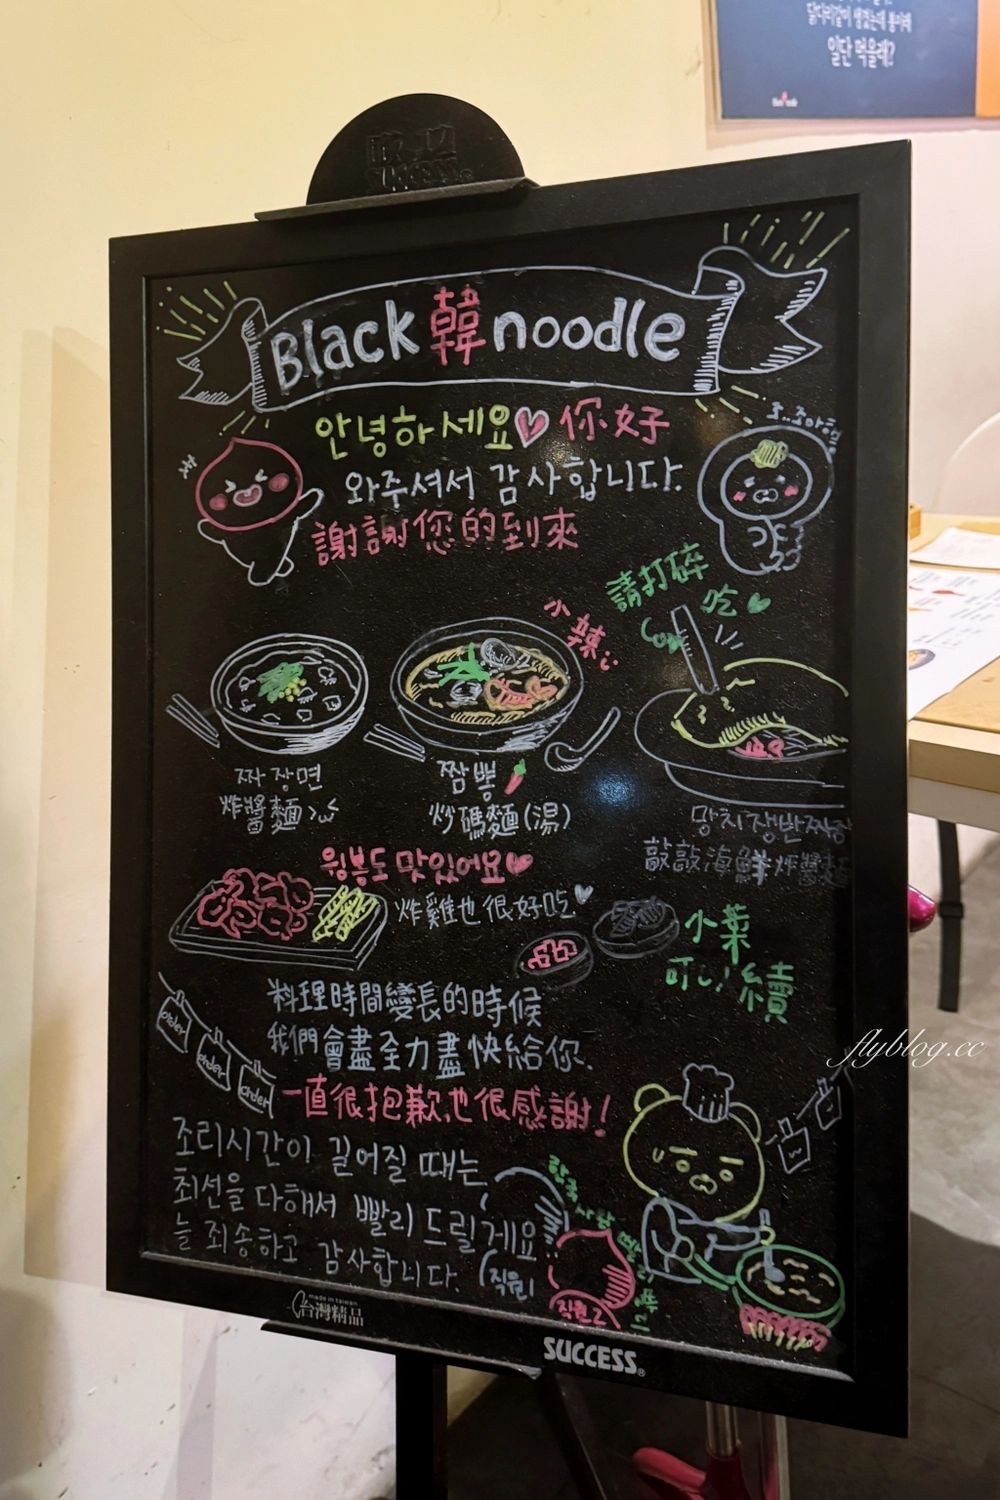 닭다리같이 생겼는데 통이래
일단 먹을래?
SUCCESS
Black 韓 noodle
안녕하세요 你好
와주셔서 감사합니다.
謝謝您的到來
請打碎
吃
小辣
짜장면
炸醬麵
짬뽕
炒碼麵(湯)
망치쟁반짜장
敲敲海鮮炸醬麵
윙봉도 맛있어요
炸雞也很好吃
小菜
可以續
料理時間變長的時候
我們會盡全力盡快給你.
order
order
order
一直很抱歉也很感謝!
조리시간이 길어질 때는
최선을 다해서 빨리 드릴게요
늘 죄송하고 감사합니다.
(직원1
직원2
한국 사람
made in taiwan
台灣精品
SUCCESS
flyblog.cc